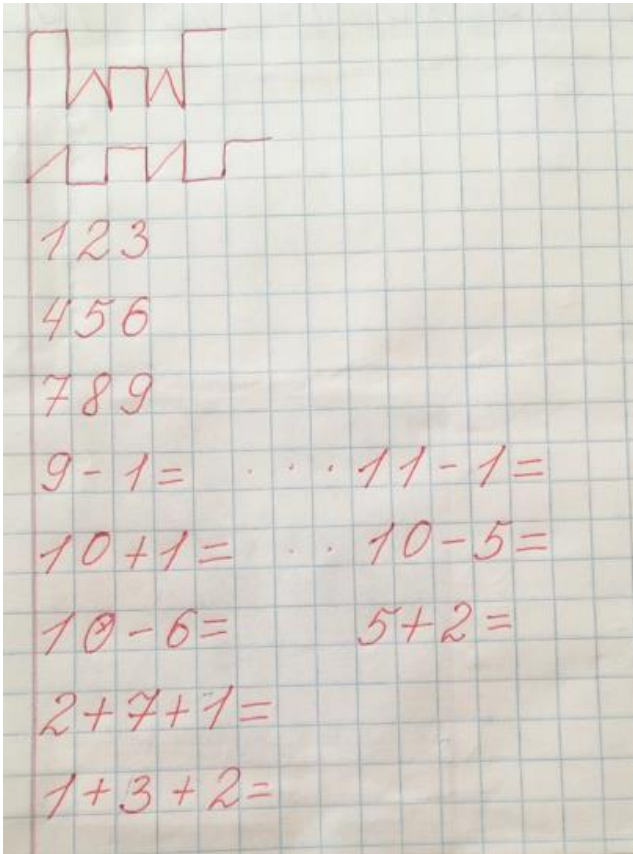 123
456
789
9-1= . . . 11-1=
10+1= . . 10-5=
10-6= 5+2=
2+7+1=
1+3+2=